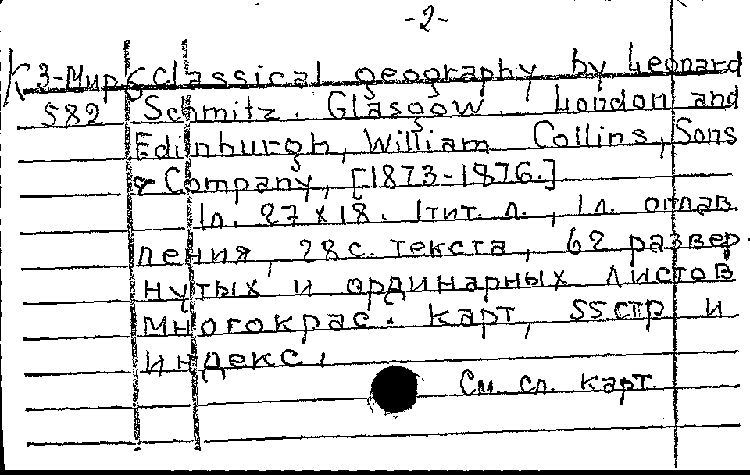 -2-
К 3-Мир classical geography by Leonard
582 Schmitz. Glasgow London and
Edinburgh, William Collins, Sons
& Company, [1873-1876.]
1л. 27×18. 1 тит. л., 1 л. оглав
ления, 28 с. текста, 62 развер-
нутых и ординарных листов
многокрас. карт, 55 стр и
индекс.
См. сл. карт